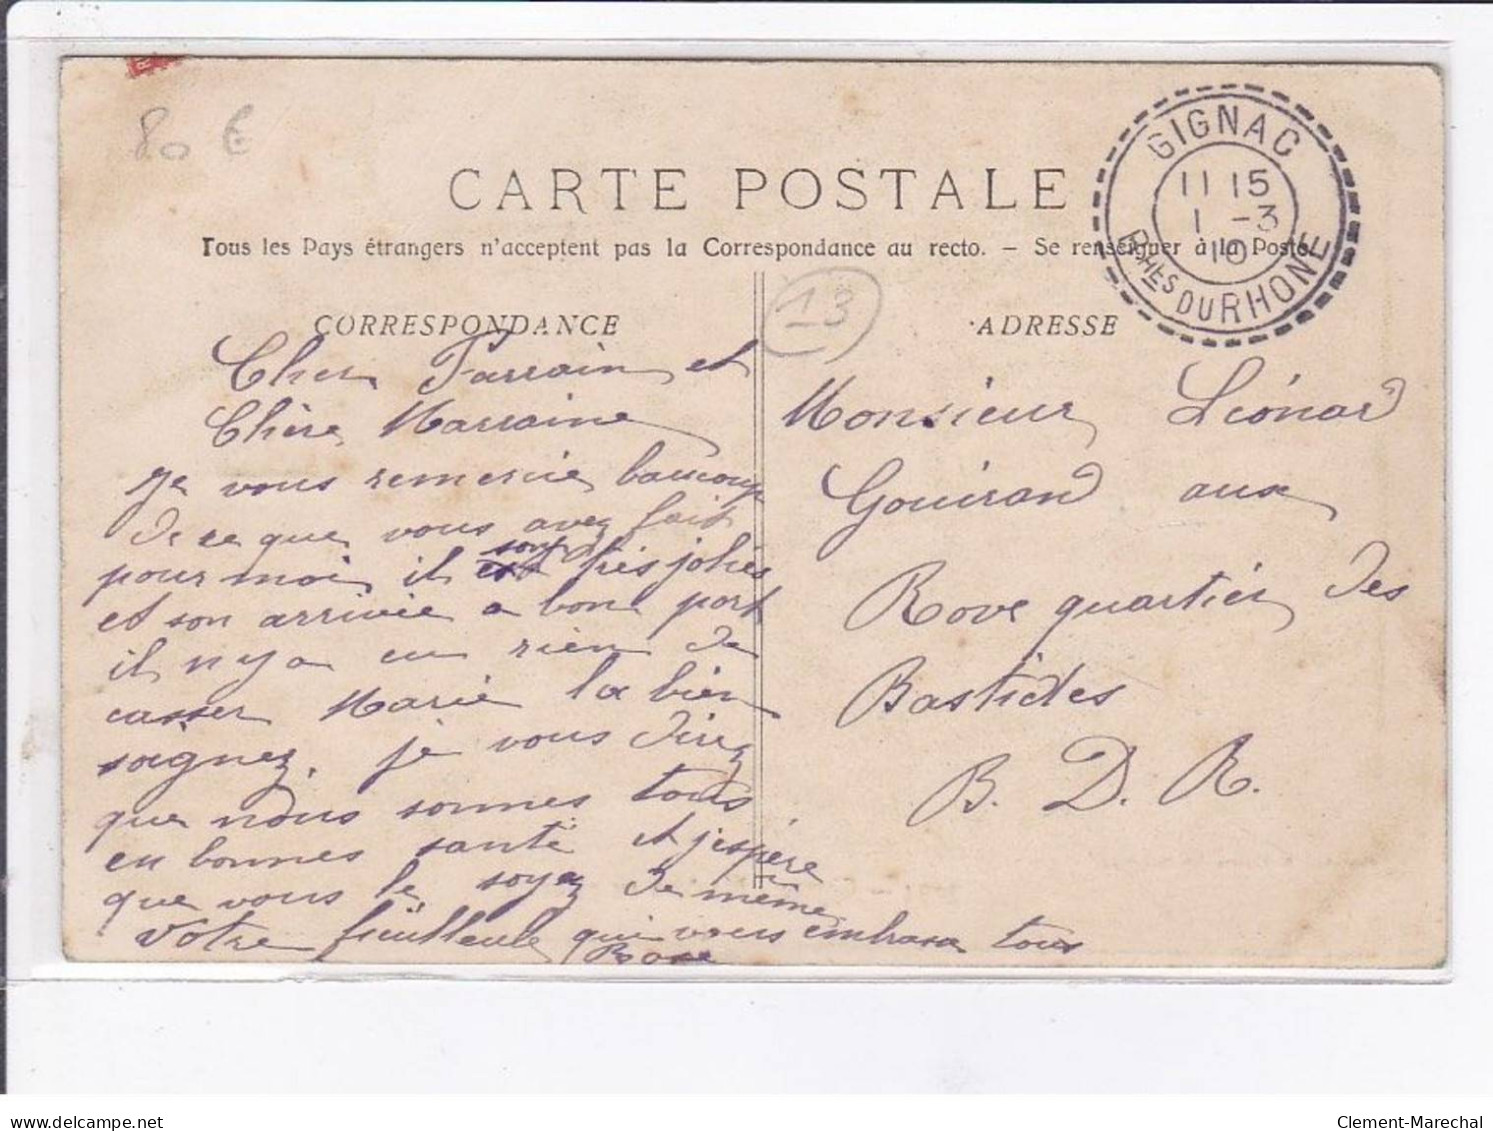 80 €
CARTE POSTALE
Tous les Pays étrangers n'acceptent pas la Correspondance au recto. — Se renseigner à la Poste.
GIGNAC
11 15
1 -3
10
BCHES DU RHONE
13
CORRESPONDANCE
Cher Parrain et
Chère Marraine
je vous remercie baucoup
de ce que vous avez fait
pour moi il sont très jolies
et son arrivée a bone port
il n'y a eu rien de
casser Marie la bien
soignez. je vous direz
que nous sonnes tous
en bonnes santé et j'espère
que vous le soyez de même
Votre fieulleule qui vous embrasse tous
Rose
ADRESSE
Monsieur Léonard
Gouiran aux
Rove quartier des
Bastides
B. D. R.
www.delcampe.net
Clement-Marechal